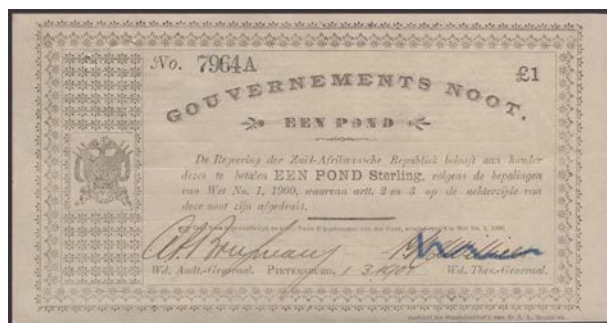 No. 7964A
£1
GOUVERNEMENTS NOOT.
EEN POND
De Regeering der Zuid-Afrikaansche Republiek belooft aan houder
dezes te betalen EEN POND Sterling, volgens de bepalingen
van Wet No. 1, 1900, waarvan artt. 2 en 3 op de achterzijde van
deze noot zijn afgedrukt.
Wd. Audt.-Generaal. PIETERSBURG, 1.3.1901 Wd. Thes.-Generaal.